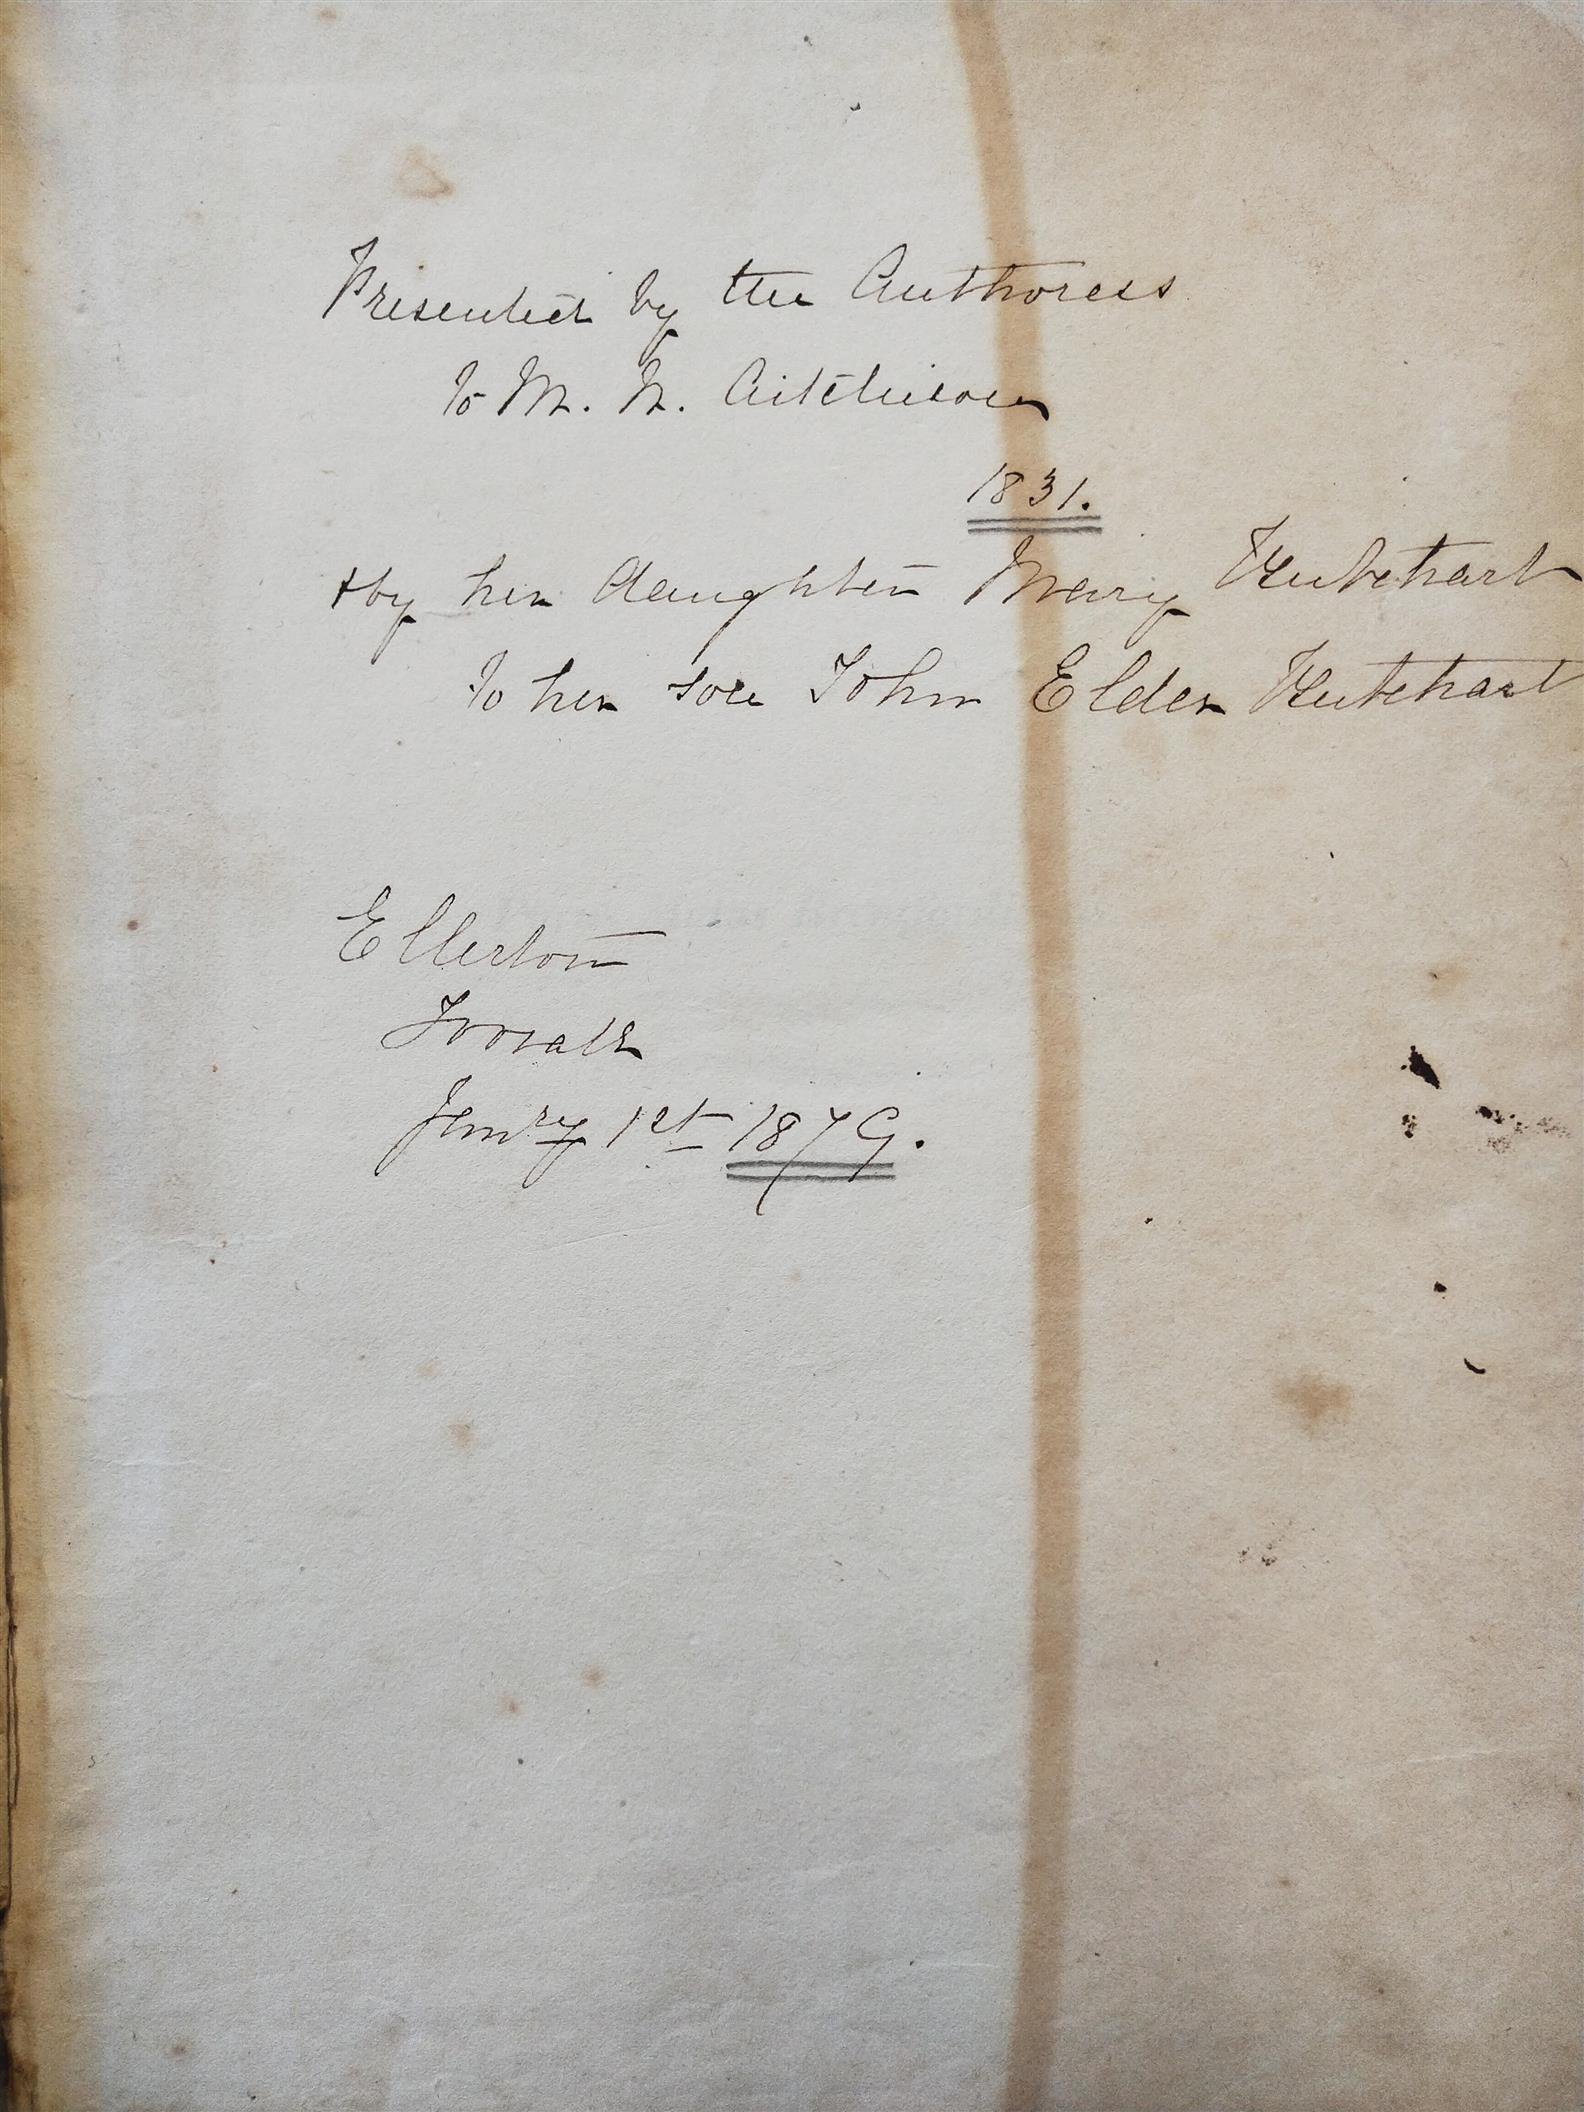 Presented by the Authoress
to M. N. Aitchison
1831.
& by her daughter Mary Hutchart
to her son John Elder Hutchart
Ellerton
Toorak
Janry 1st 1879.